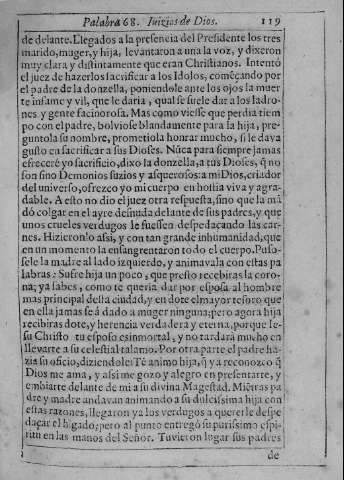 Palabra 68. Iuizios de Dios. 119
de delante. Llegados a la presencia del Presidente los tres
marido, muger, y hija, levantaron a una la voz, y dixeron
muy clara y distintamente que eran Christianos. Intentó
el juez de hazerlos sacrificar a los Idolos, começando por
el padre de la donzella, poniendole ante los ojos la muer
te infame y vil, que le daria, qual se suele dar a los ladro-
nes y gente facinorosa. Mas como viesse que perdia tiem
po con el padre, bolviose blandamente para la hija, pre-
guntola su nombre, prometiola honrar mucho, si le dava
gusto en sacrificar a sus Dioses. Nũca para siempre jamas
ofreceré yo sacrificio, dixo la donzella, a tus Dioses, q̃ no
son sino Demonios suzios y asquerosos: a mi Dios, criador
del universo, ofrezco yo mi cuerpo en hostia viva y agra-
dable. A esto no dio el juez otra respuesta, sino que la mã
dó colgar en el ayre desnuda delante de sus padres, y que
unos crueles verdugos le fuessen despedaçando las car-
nes. Hizieronlo assi, y con tan grande inhumanidad, que
en un momento la ensangrentaron todo el cuerpo. Puso-
sele la madre al lado izquierdo, y animavala con estas pa
labras: Sufre hija un poco, que presto recebiras la coro-
na; ya sabes, como te queria dar por esposa al hombre
mas principal desta ciudad, y en dote el mayor tesoro que
en ella jamas se á dado a muger ninguna; pero agora hija
recibiras dote, y herencia verdadera y eterna, porque Ie-
su Christo tu esposo es inmortal, y no tardará mucho en
llevarte a su celestial talamo. Por otra parte el padre ha-
zia su oficio, diziendole: Tẽ animo hija, q̃ ya reconozco q̃
Dios me ama, y assi me gozo y alegro en presentarte, y
embiarte delante de mi a su divina Magestad. Miẽtras pa
dre y madre andavan animando a su dulcissima hija con
estas razones, llegaron ya los verdugos a quererle despe
daçar el higado; pero al punto entregó su purissimo espi-
ritu en las manos del Señor. Tuvieron lugar sus padres
de